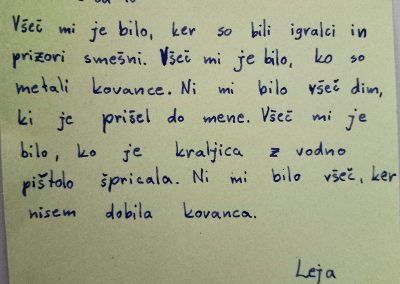 Všeč mi je bilo, ker so bili igralci in
prizori smešni. Všeč mi je bilo, ko so
metali kovance. Ni mi bilo všeč dim,
ki je prišel do mene. Všeč mi je
bilo, ko je kraljica z vodno
pištolo špricala. Ni mi bilo všeč, ker
nisem dobila kovanca.
Leja